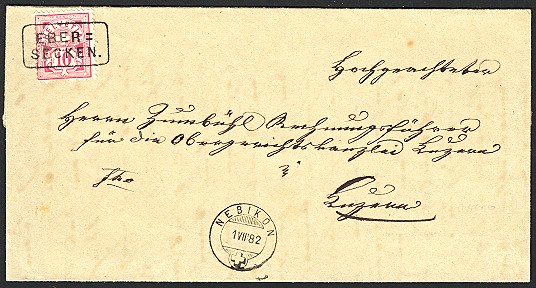 EBER=
SECKEN.
10
Hochgeachteten
Herrn Zumbühl Rechnungsführer
für die Obergerichtskanzlei Luzern
in
Luzern
NEBIKON
1 VII 82